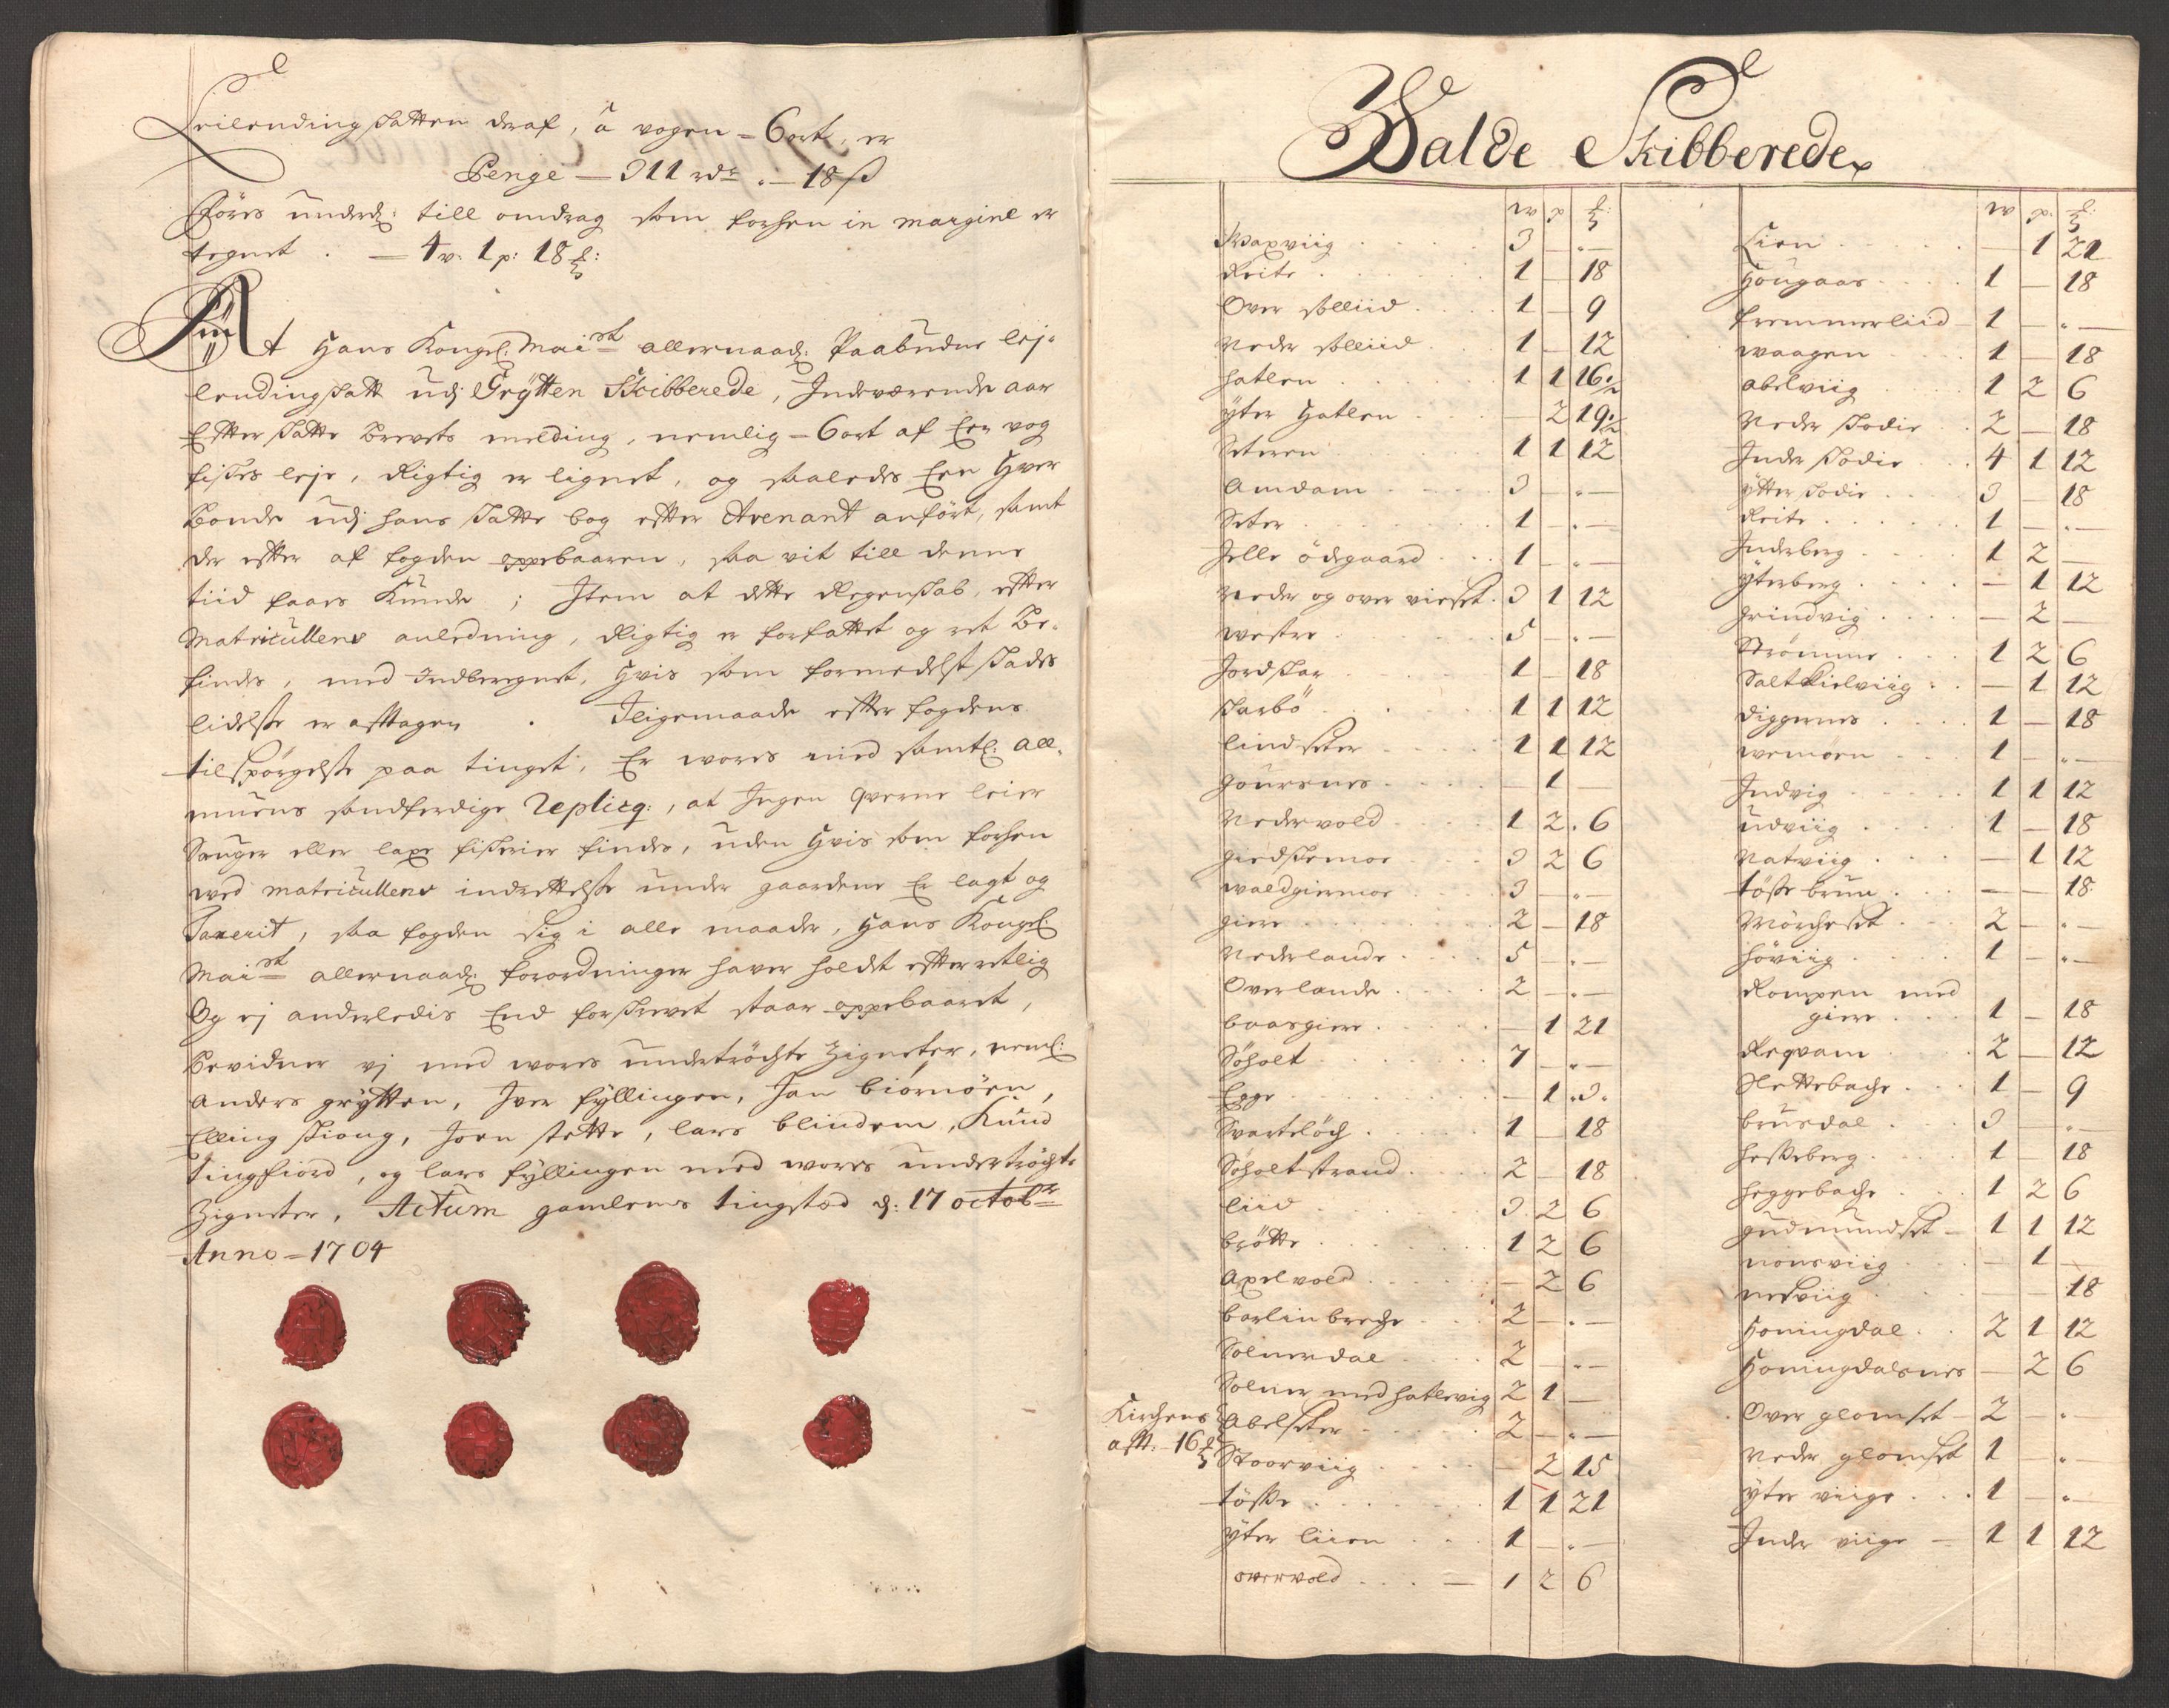 Leilendingskatten deraf, â vogen = 6 ort, er
Penge — 311 rdr. — 18 ß
Föres underd: till omdrag som forhen in margine er
tegnet . — 4 v: 1 p: 18 ℔:
At Hans Kongel: Maist allernaad: Paabudne lej-
lendingskatt udj Grÿtten Skibberede, Indeværende aar
Efter Skatte brevets melding, nemlig = 6 ort af Een vog
fiskes leje, Rigtig er lignet, og saaledes Een Hver
Bonde udj hans Skatte bog efter Avenant anfört, samt
der efter af fogden oppebaaren, saa vit till denne
tiid faaes Kunde ; Item at dette Regenskab, efter
Matricullens anledning, Rigtig er forfattet og ret be-
findes, med Indberegnet, Hvis som formedelst skades
lidelse er afttagen . Iligemaade efter fogdens
tilspörgelse paa tinget, Er wores med samtl: All-
muens sandferdige Replicq:, at Ingen qverne leier
Sauger eller laxe fiskerier findes, uden Hvis som forhen
ved matricullens indrettelse under gaardene Er lagt og
Taxerit, saa fogden sig i alle maader, Hans Kongel:
Maist allernaad: forordninger haver holdt efterretlig
Og ej anderledis End forskrevet staar oppebaaret,
bevidner vj med wores undertröchte Zigneter, neml:
Anders grÿtten, Iver fÿllingen, Jan biörnöen,
Elling skiong, Joen stette, lars blindem, Knud
tingfiord, og lars fÿllingen med wores undertröchte
Zigneter, Actum gamlems tingsted d: 17 octobr
Anno = 1704
Walde Skibberede
w p ℔:
Waxviig . . . 3 — . —
Reite . . . 1 — 18
Over solliid . . . 1 — 9
Neder solliid . . . 1 — 12
hatlen . . . 1 1 16½
ÿter Hatlen . . . — 2 19½
Seteren . . . 1 1 12
Amdam . . . 3 — . —
Seter . . . 1 — . —
Jelle ödegaard . . . 1 — . —
Neder og over virset . 3 1 12
westre . . . 5 — . —
Jordskar . . . 1 — 18
skarbö . . . 1 1 12
lindseter . . . 1 1 12
gouesnes . . . — 1 —
Nedervold . . . 1 2 . 6
giedskemoe . . . 3 2 6
waldgiermoe . . . 3 — . —
giere . . . 2 — 18
Nederlande . . . 5 — . —
Overlande . . . 2 — . —
baasgiere . . . — 1 21
Söholt . . . 7 — . —
Egge . . . — 1 . 3 .
Svartelöch . . . 1 — 18
Söholtstrand . . . 2 — 18
liid . . . 3 2 6
brötte . . . 1 2 6
Axelvold . . . — 2 6
barlinbreche . . . 2 — . —
Solnerdal . . . 2 — . —
Solner med hatlevig 2 1 —
Kirchens
aftt. — 16 ℔
Abelseter . . . 2 — . —
Stoorviig . . . — 2 15
tösse . . . 1 1 21
ÿter liien . . . 1 — . —
overvold . . . — 1 2 6
w p: ℔:
Lien . . . — 1 21
Hougaas . . . 1 — 18
fremmerliid — 1 — . —
waagen . . . 1 — 18
abelviig . . . 1 2 6
Neder skodie . . 2 — 18
Inder skodie . . 4 1 12
ÿtter skodie . . . 3 — 18
Reite . . . 1 — . —
Inderberg . . . 1 2 —
ÿterberg . . . — 1 12
grindvig . . . — 2 —
Strömme . . . 1 2 6
Saltkielviiig . . — 1 12
diggernes . . . 1 — 18
wemöen . . . 1 — . —
Indvig . . . 1 1 12
udviig . . . 1 — 18
Natviig . . . — 1 12
tösse bruu . . . — — 18
Mörcheset . . . 2 — . —
höviig . . . 1 — . —
Rompen med
giere . . . 1 — 18
Reqvam . . . 2 — 12
Slettebache . . . 1 — 9
brusdal . . . 3 — . —
hesseberg . . . 1 — 18
heggebache . . . 1 2 6
gudmundset — 1 1 12
nonsviig . . . — 1 —
nesviig . . . — — 18
Honningdal . . 2 1 12
Honningdalsnes — 2 6
Over glomset — 2 — . —
Neder glomset 1 — . —
ÿter viige . . . 1 — . —
Inder viige — 1 1 12